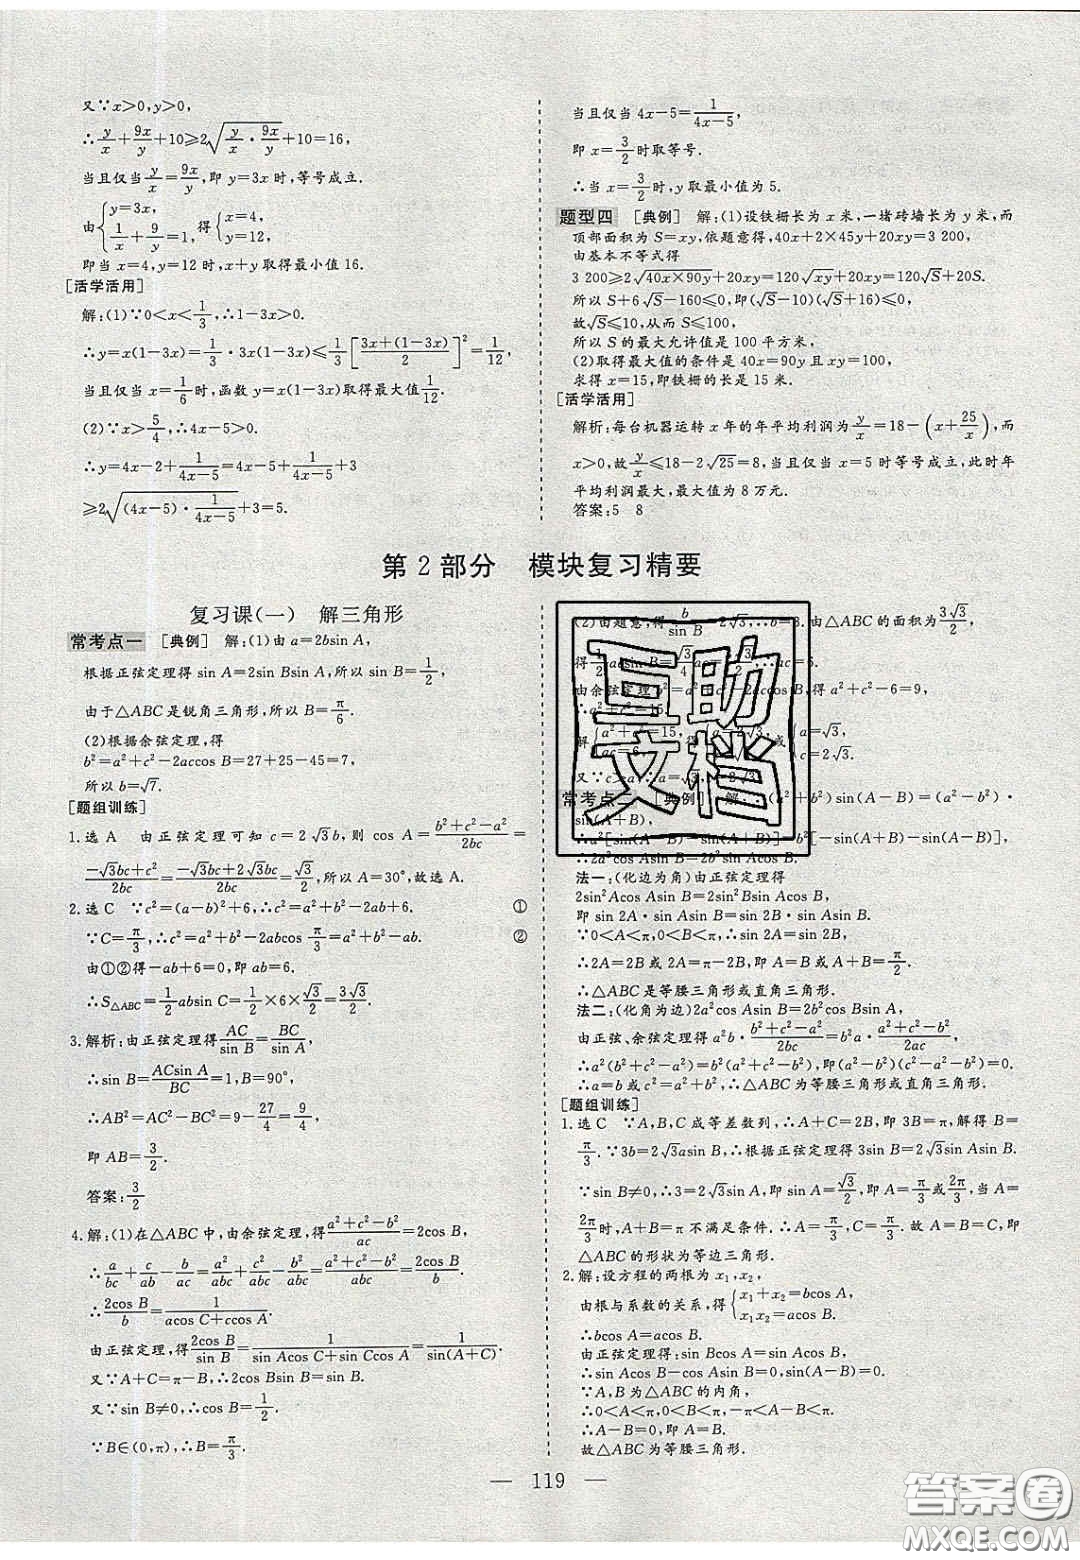 又∵x>0,y>0,
∴y/x+9x/y+10≥2√(y/x·9x/y)+10=16,
当且仅当y/x=9x/y,即 y=3x 时,等号成立.
由{y=3x, 1/x+9/y=1,得{x=4, y=12.
即当 x=4,y=12 时,x+y 取得最小值 16.
[活学活用]
解:(1)∵0<x<1/3,∴1-3x>0.
∴y=x(1-3x)=1/3·3x(1-3x)≤1/3[(3x+(1-3x))/2]²=1/12,
当且仅当 x=1/6时,函数 y=x(1-3x)取得最大值1/12.
(2)∵x>5/4,∴4x-5>0.
∴y=4x-2+1/(4x-5)=4x-5+1/(4x-5)+3
≥2√((4x-5)·1/(4x-5))+3=5.
当且仅当 4x-5=1/(4x-5),
即 x=3/2时取等号.
∴当 x=3/2时,y 取最小值为 5.
题型四 [典例] 解:(1)设铁栅长为 x 米,一堵砖墙长为 y 米,而
顶部面积为 S=xy,依题意得,40x+2×45y+20xy=3 200,
由基本不等式得
3 200≥2√(40x×90y)+20xy=120√xy+20xy=120√S+20S.
所以 S+6√S-160≤0,即(√S-10)(√S+16)≤0,
故√S≤10,从而 S≤100,
所以 S 的最大允许值是 100 平方米,
(2)取得最大值的条件是 40x=90y 且 xy=100,
求得 x=15,即铁栅的长是 15 米.
[活学活用]
解析:每台机器运转 x 年的年平均利润为y/x=18-(x+25/x),而
x>0,故y/x≤18-2√25=8,当且仅当 x=5 时等号成立,此时年
平均利润最大,最大值为 8 万元.
答案:5 8
第 2 部分 模块复习精要
复习课(一) 解三角形
常考点一 [典例] 解:(1)由 a=2bsin A,
根据正弦定理得 sin A=2sin Bsin A,所以 sin B=1/2,
由于△ABC 是锐角三角形,所以 B=π/6.
(2)根据余弦定理,得
b²=a²+c²-2accos B=27+25-45=7,
所以 b=√7.
[题组训练]
1.选 A 由正弦定理可知 c=2√3b,则 cos A=(b²+c²-a²)/2bc=
(-√3bc+c²)/2bc=(-√3bc+2√3bc)/2bc=√3/2,所以 A=30°,故选 A.
2.选 C ∵c²=(a-b)²+6,∴c²=a²+b²-2ab+6. ①
∵C=π/3,∴c²=a²+b²-2abcos π/3=a²+b²-ab. ②
由①②得-ab+6=0,即 ab=6.
∴S△ABC=1/2absin C=1/2×6×√3/2=3√3/2.
3.解析:由正弦定理可知AC/sin B=BC/sin A,
∴sin B=ACsin A/BC=1,B=90°,
∴AB²=AC²-BC²=9-27/4=9/4,
即 AB=3/2.
答案:3/2
4.解:(1)在△ABC 中,由余弦定理,得(a²+c²-b²)/ac=2cos B,
∴a/bc+c/ab-b/ac=a²/abc+c²/abc-b²/abc=(a²+c²-b²)/abc=2cos B/b
∴2cos B/b=1/(acos C+ccos A).
由正弦定理,得2cos B/sin B=1/(sin Acos C+sin Ccos A)=1/sin(A+C).
又∵A+C=π-B,∴2cos Bsin B=sin B.
又∵sin B≠0,∴cos B=1/2.
∵B∈(0,π),∴B=π/3.
(2)由题意,得b/sin B=2√3,∴b=3.由△ABC 的面积为3√3/2,
得1/2acsin B=√3/4ac=3√3/2,∴ac=6.
由余弦定理 b²=a²+c²-2accos B,得 a²+c²-6=9,
∴a²+c²=15.
解{a²+c²=15, ac=6,得{a=2√3, c=√3或{a=√3, c=2√3.
又∵c>a,∴a=√3,c=2√3.
常考点二 [典例] 解:∵(a²+b²)sin(A-B)=(a²-b²)·
sin(A+B),
∴a²[sin(A-B)-sin(A+B)]=b²[-sin(A+B)-sin(A-B)],
∴2a²cos Asin B=2b²sin Acos B.
法一:(化边为角)由正弦定理得
2sin²Acos Asin B=2sin²Bsin Acos B,
即 sin 2A·sin Asin B=sin 2B·sin Asin B.
∵0<A<π,0<B<π,∴sin 2A=sin 2B,
∴2A=2B 或 2A=π-2B,即 A=B 或 A+B=π/2.
∴△ABC 是等腰三角形或直角三角形.
法二:(化角为边)2a²cos Asin B=2b²cos Bsin A,
由正弦、余弦定理得 a²b·(b²+c²-a²)/2bc=b²a·(a²+c²-b²)/2ac,
∴a²(b²+c²-a²)=b²(a²+c²-b²),即(a²-b²)(c²-a²-b²)=0.
∴a=b 或 c²=a²+b²,∴△ABC 为等腰三角形或直角三角形.
[题组训练]
1.选 C ∵A,B,C 成等差数列,∴A+C=2B,即 3B=π,解得 B=
π/3.∵3b=2√3asin B,∴根据正弦定理得 3sin B=2√3sin Asin B.
∵sin B≠0,∴3=2√3sin A,即 sin A=√3/2,即 A=π/3或2π/3,当 A=
2π/3时,A+B=π 不满足条件.∴A=π/3,C=π/3.故 A=B=C,即
△ABC 的形状为等边三角形.
2.解:设方程的两根为 x₁,x₂,
由根与系数的关系,得{x₁+x₂=bcos A, x₁x₂=acos B.
∴bcos A=acos B.
由正弦定理得:sin Bcos A=sin Acos B,
∴sin Acos B-cos Asin B=0,sin(A-B)=0.
∵A,B 为△ABC 的内角,
∴0<A<π,0<B<π,-π<A-B<π.
∴A-B=0,即 A=B.
故△ABC 为等腰三角形.
— 119 —
互助
文档
答案圈
MXQE.COM